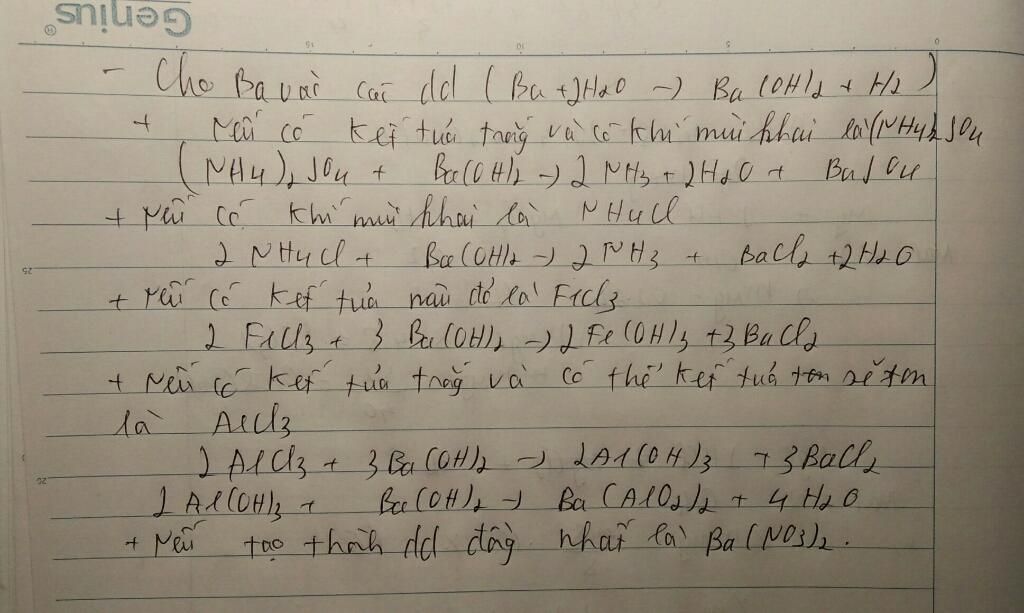 Genius®
15 10 5 0
- Cho Ba vào các dd (Ba + 2H2O → Ba(OH)2 + H2)
+ Nếu có kết tủa trắng và có khí mùi khai là (NH4)2SO4
(NH4)2SO4 + Ba(OH)2 → 2NH3 + 2H2O + BaSO4
+ Nếu có khí mùi khai là NH4Cl
2NH4Cl + Ba(OH)2 → 2NH3 + BaCl2 + 2H2O
25
+ Nếu có kết tủa nâu đỏ là FeCl3
2FeCl3 + 3Ba(OH)2 → 2Fe(OH)3 + 3BaCl2
+ Nếu có kết tủa trắng và có thể kết tủa tan sẽ tan
là AlCl3
2AlCl3 + 3Ba(OH)2 → 2Al(OH)3 + 3BaCl2
20
2Al(OH)3 + Ba(OH)2 → Ba(AlO2)2 + 4H2O
+ Nếu tạo thành dd đồng nhất là Ba(NO3)2.